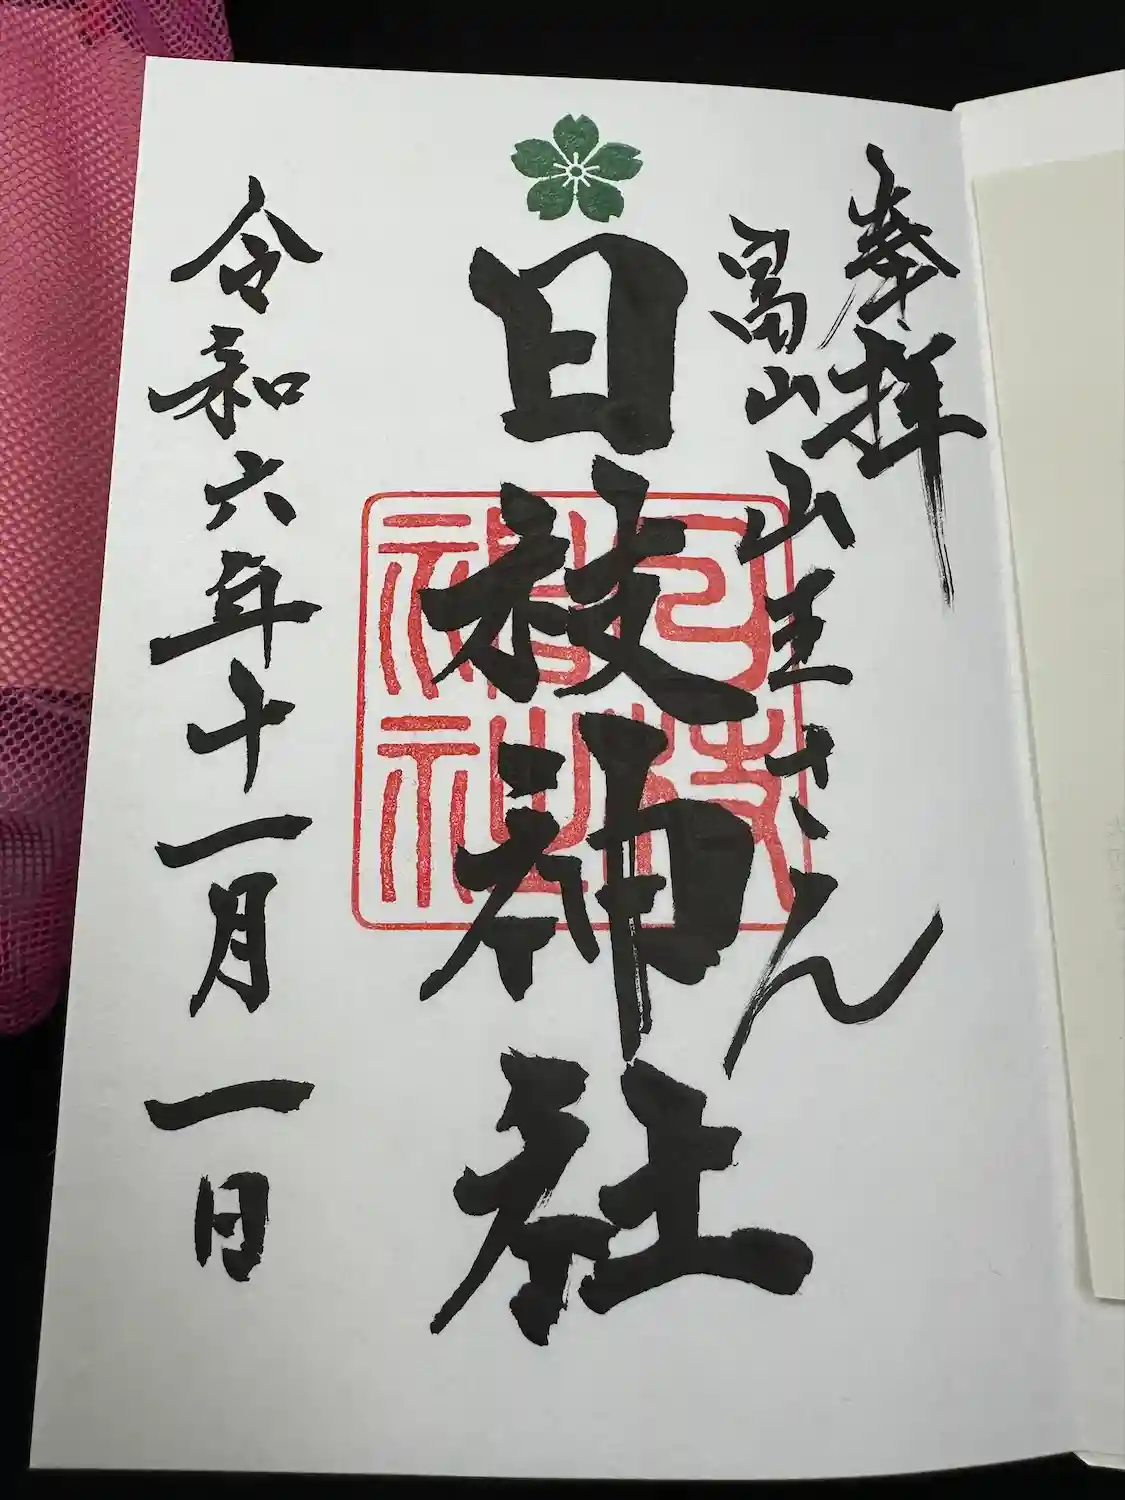 奉拝
冨山山王さん
日枝神社
日枝神社
令和六年十一月一日